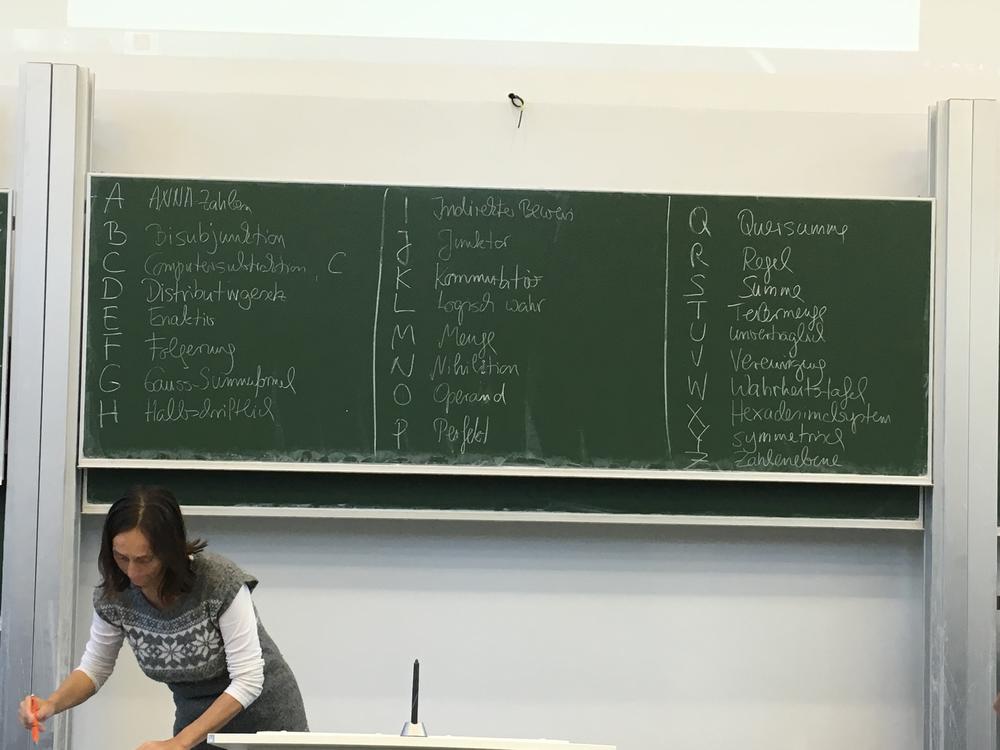 A ANNA-Zahlen
B Bisubjunktion
C Computersubtraktion, C
D Distributivgesetz
E Enaktiv
F Folgerung
G Gauss-Summenformel
H Halbschriftlich
I Indirekter Beweis
J Junktor
K Kommutativ
L Logisch wahr
M Menge
N Nihilition
O Operand
P Perfekt
Q Quersumme
R Regel
S Summe
T Teilermenge
U unverträglich
V Vereinigung
W Wahrheitstafel
X Hexadezimalsystem
Y symmetrisch
Z Zahlenebene